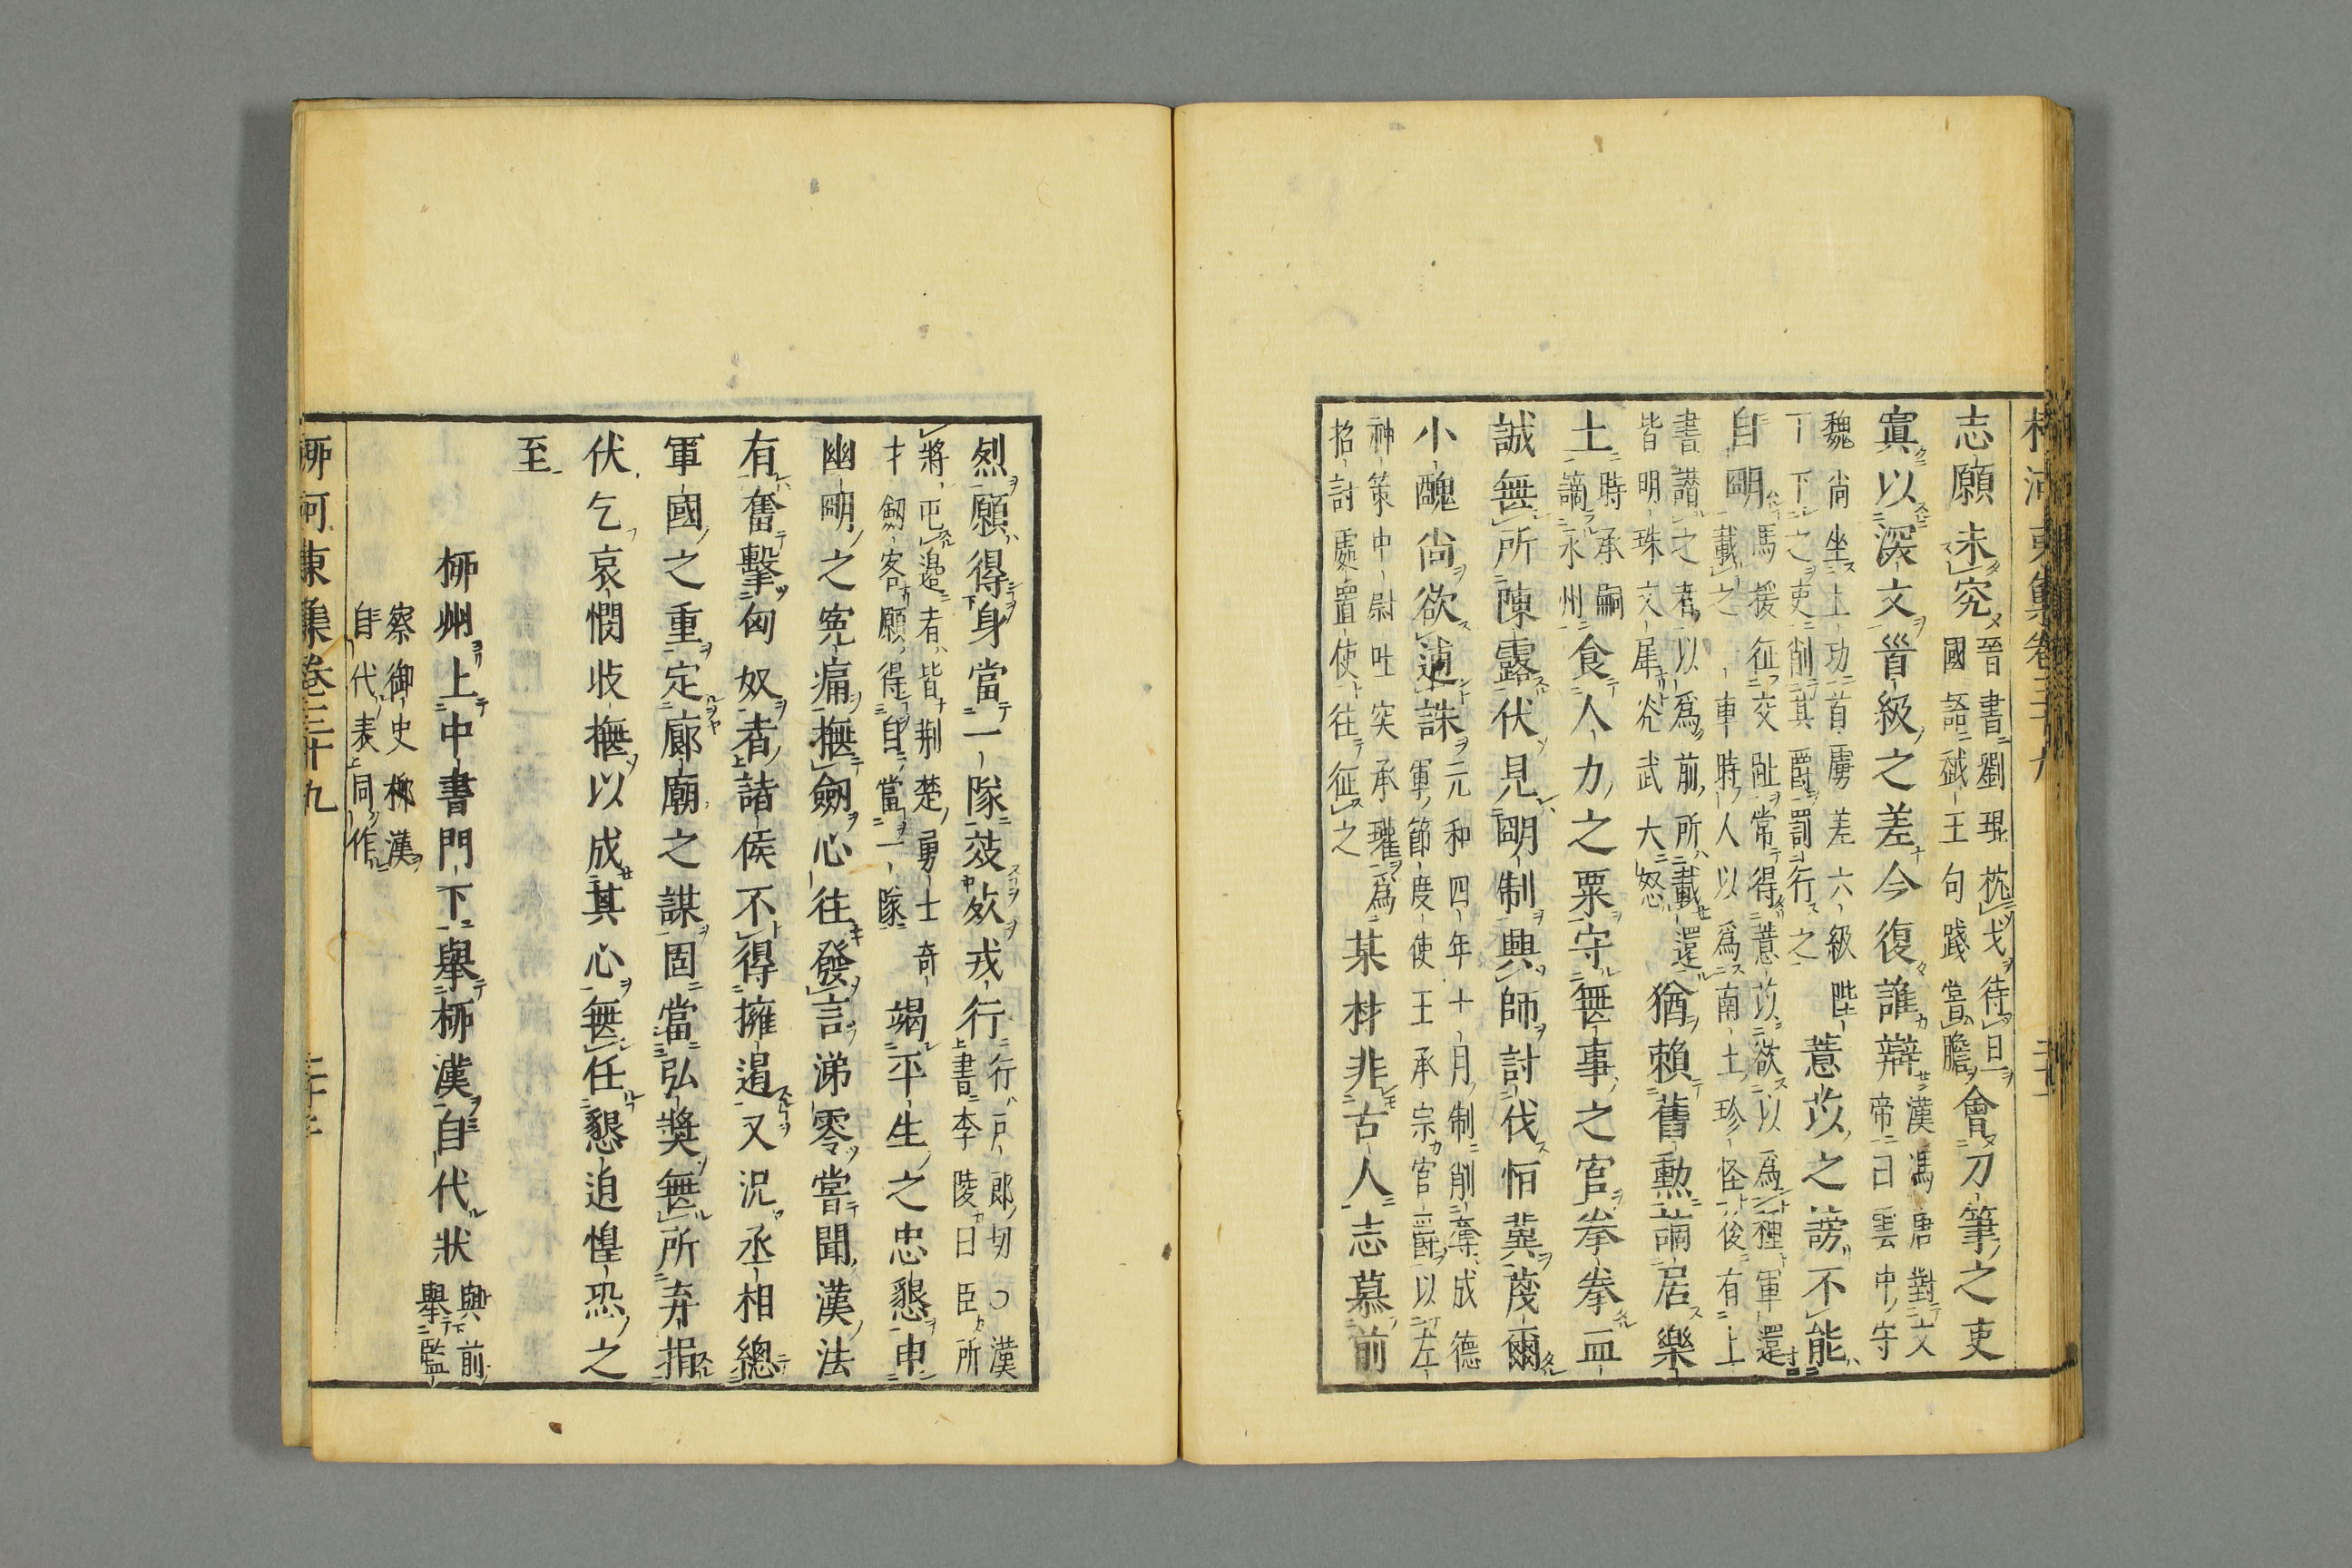 志願未究晉書劉琨枕戈待旦
國語越王句踐嘗膽會刀筆之吏
寘以深文首級之差今復誰辯漢馮唐對文
帝曰雲中守
魏尚坐上功首虜差六級陛
下下之吏削其爵罰行之薏苡之謗不能
自明馬援征交阯常得薏苡欲以爲種軍還
載之一車時人以爲南土珍怪後有上
書譖之者以爲前所載還
皆明珠文犀光武大怒猶賴舊勲謫居樂
土時承嗣
謫永州食人力之粟守無事之官拳拳血
誠無所陳露伏見明制興師討伐恒冀蔑爾
小醜尚欲逋誅元和四年十月制削奪成德
軍節度使王承宗官爵以左
神策中尉吐突承璀爲
招討處置使往征之某材非古人志慕前
烈願得身當一隊效死戎行行戸郎切〇漢
書李陵曰臣所
將屯邊者皆荆楚勇士奇
才劒客願得自當一隊竭平生之忠懇申
幽明之寃痛撫劒心往發言涕零嘗聞漢法
有奮擊匈奴者諸侯不得擁遏又況丞相總
軍國之重定廊廟之謀固當弘奬無所弃捐
伏乞哀憫收撫以成其心無任懇迫惶恐之
至
柳州上中書門下舉柳漢自代狀與前
舉監
察御史柳漢
自代表同作
柳河東集卷三十九